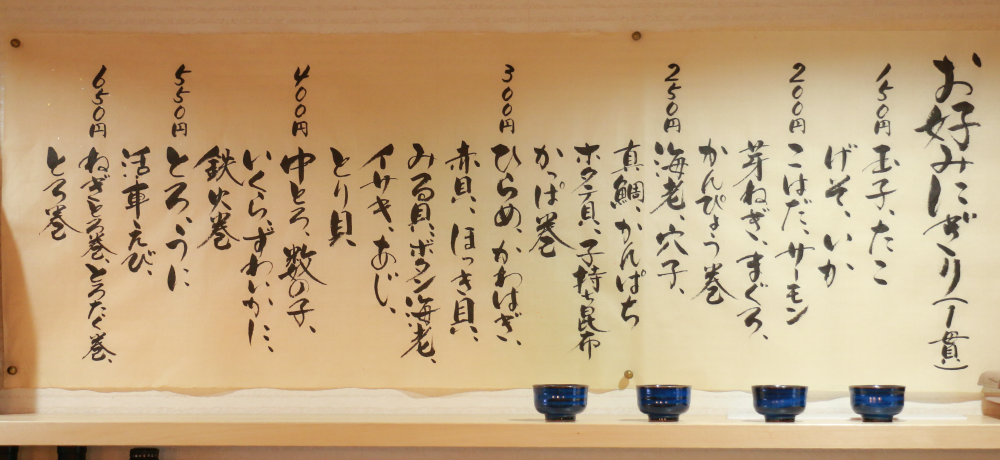 お好みにぎり(一貫)
150円 玉子、たこ
げそ、いか
200円 こはだ、サーモン
芽ねぎ、まぐろ、
かんぴょう巻
250円 海老、穴子、
真鯛、かんぱち
ホタテ貝、子持ち昆布
かっぱ巻
300円 ひらめ、かわはぎ、
赤貝、ほっき貝、
みる貝、ボタン海老、
イサキ、あじ、
とり貝
400円 中とろ、数の子、
いくら、ずわいかに、
鉄火巻
550円 とろ、うに
活車えび、
650円 ねぎとろ巻、とろたく巻、
とろ巻